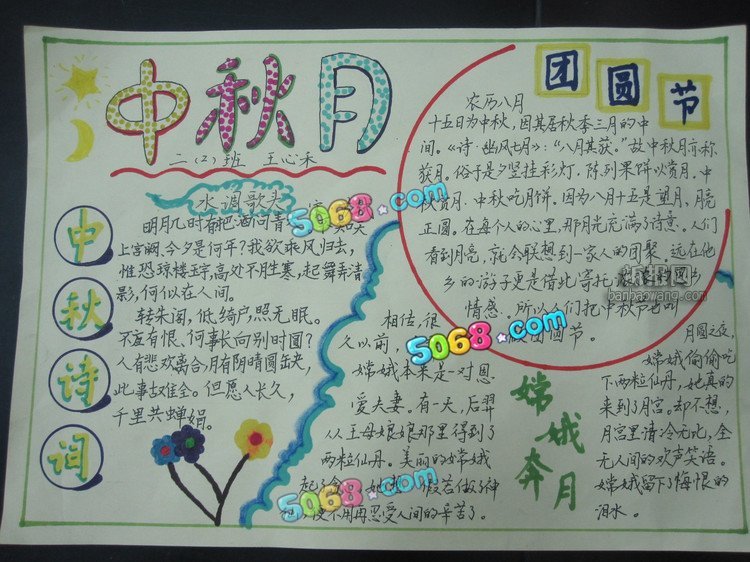 中秋月
二(2)班 王心禾
中秋诗词
水调歌头
明月几时有把酒问青
上宫阙、今夕是何年?我欲乘风归去,
惟恐琼楼玉宇,高处不胜寒,起舞弄清
影,何似在人间。
转朱阁,低绮户,照无眠。
不应有恨、何事长向别时圆?
人有悲欢离合,月有阴晴圆缺,
此事古难全。但愿人长久,
千里共蝉娟。
团圆节
农历八月
十五日为中秋,因其居秋季三月的中
间。《诗·幽风七月》:"八月其获。"故中秋月亦称
获月。俗于是夕竖挂彩灯,陈列果饼以赏月。中
秋赏月、中秋吃月饼。因为八月十五是望月,月亮
正圆。在每个人的心里,那月光充满了诗意。人们
看到月亮,就会联想到一家人的团聚。远在他
乡的游子更是借此寄托
情感。所以人们把中秋节也叫
团圆节。
嫦娥奔月
相传,很
久以前,
嫦娥本来是一对恩
爱夫妻。有一天,后羿
从王母娘娘那里得到了
两粒仙丹。美丽的嫦娥
假若做了神
便不用再忍受人间的辛苦了。
月圆之夜,
嫦娥偷偷吃
下两粒仙丹,她真的
来到了月宫。却不想,
月宫里清冷无比,全
无人间的欢声笑语。
嫦娥留下了悔恨的
泪水。
5068.com
5068.com
5068.com
banbaowang.com